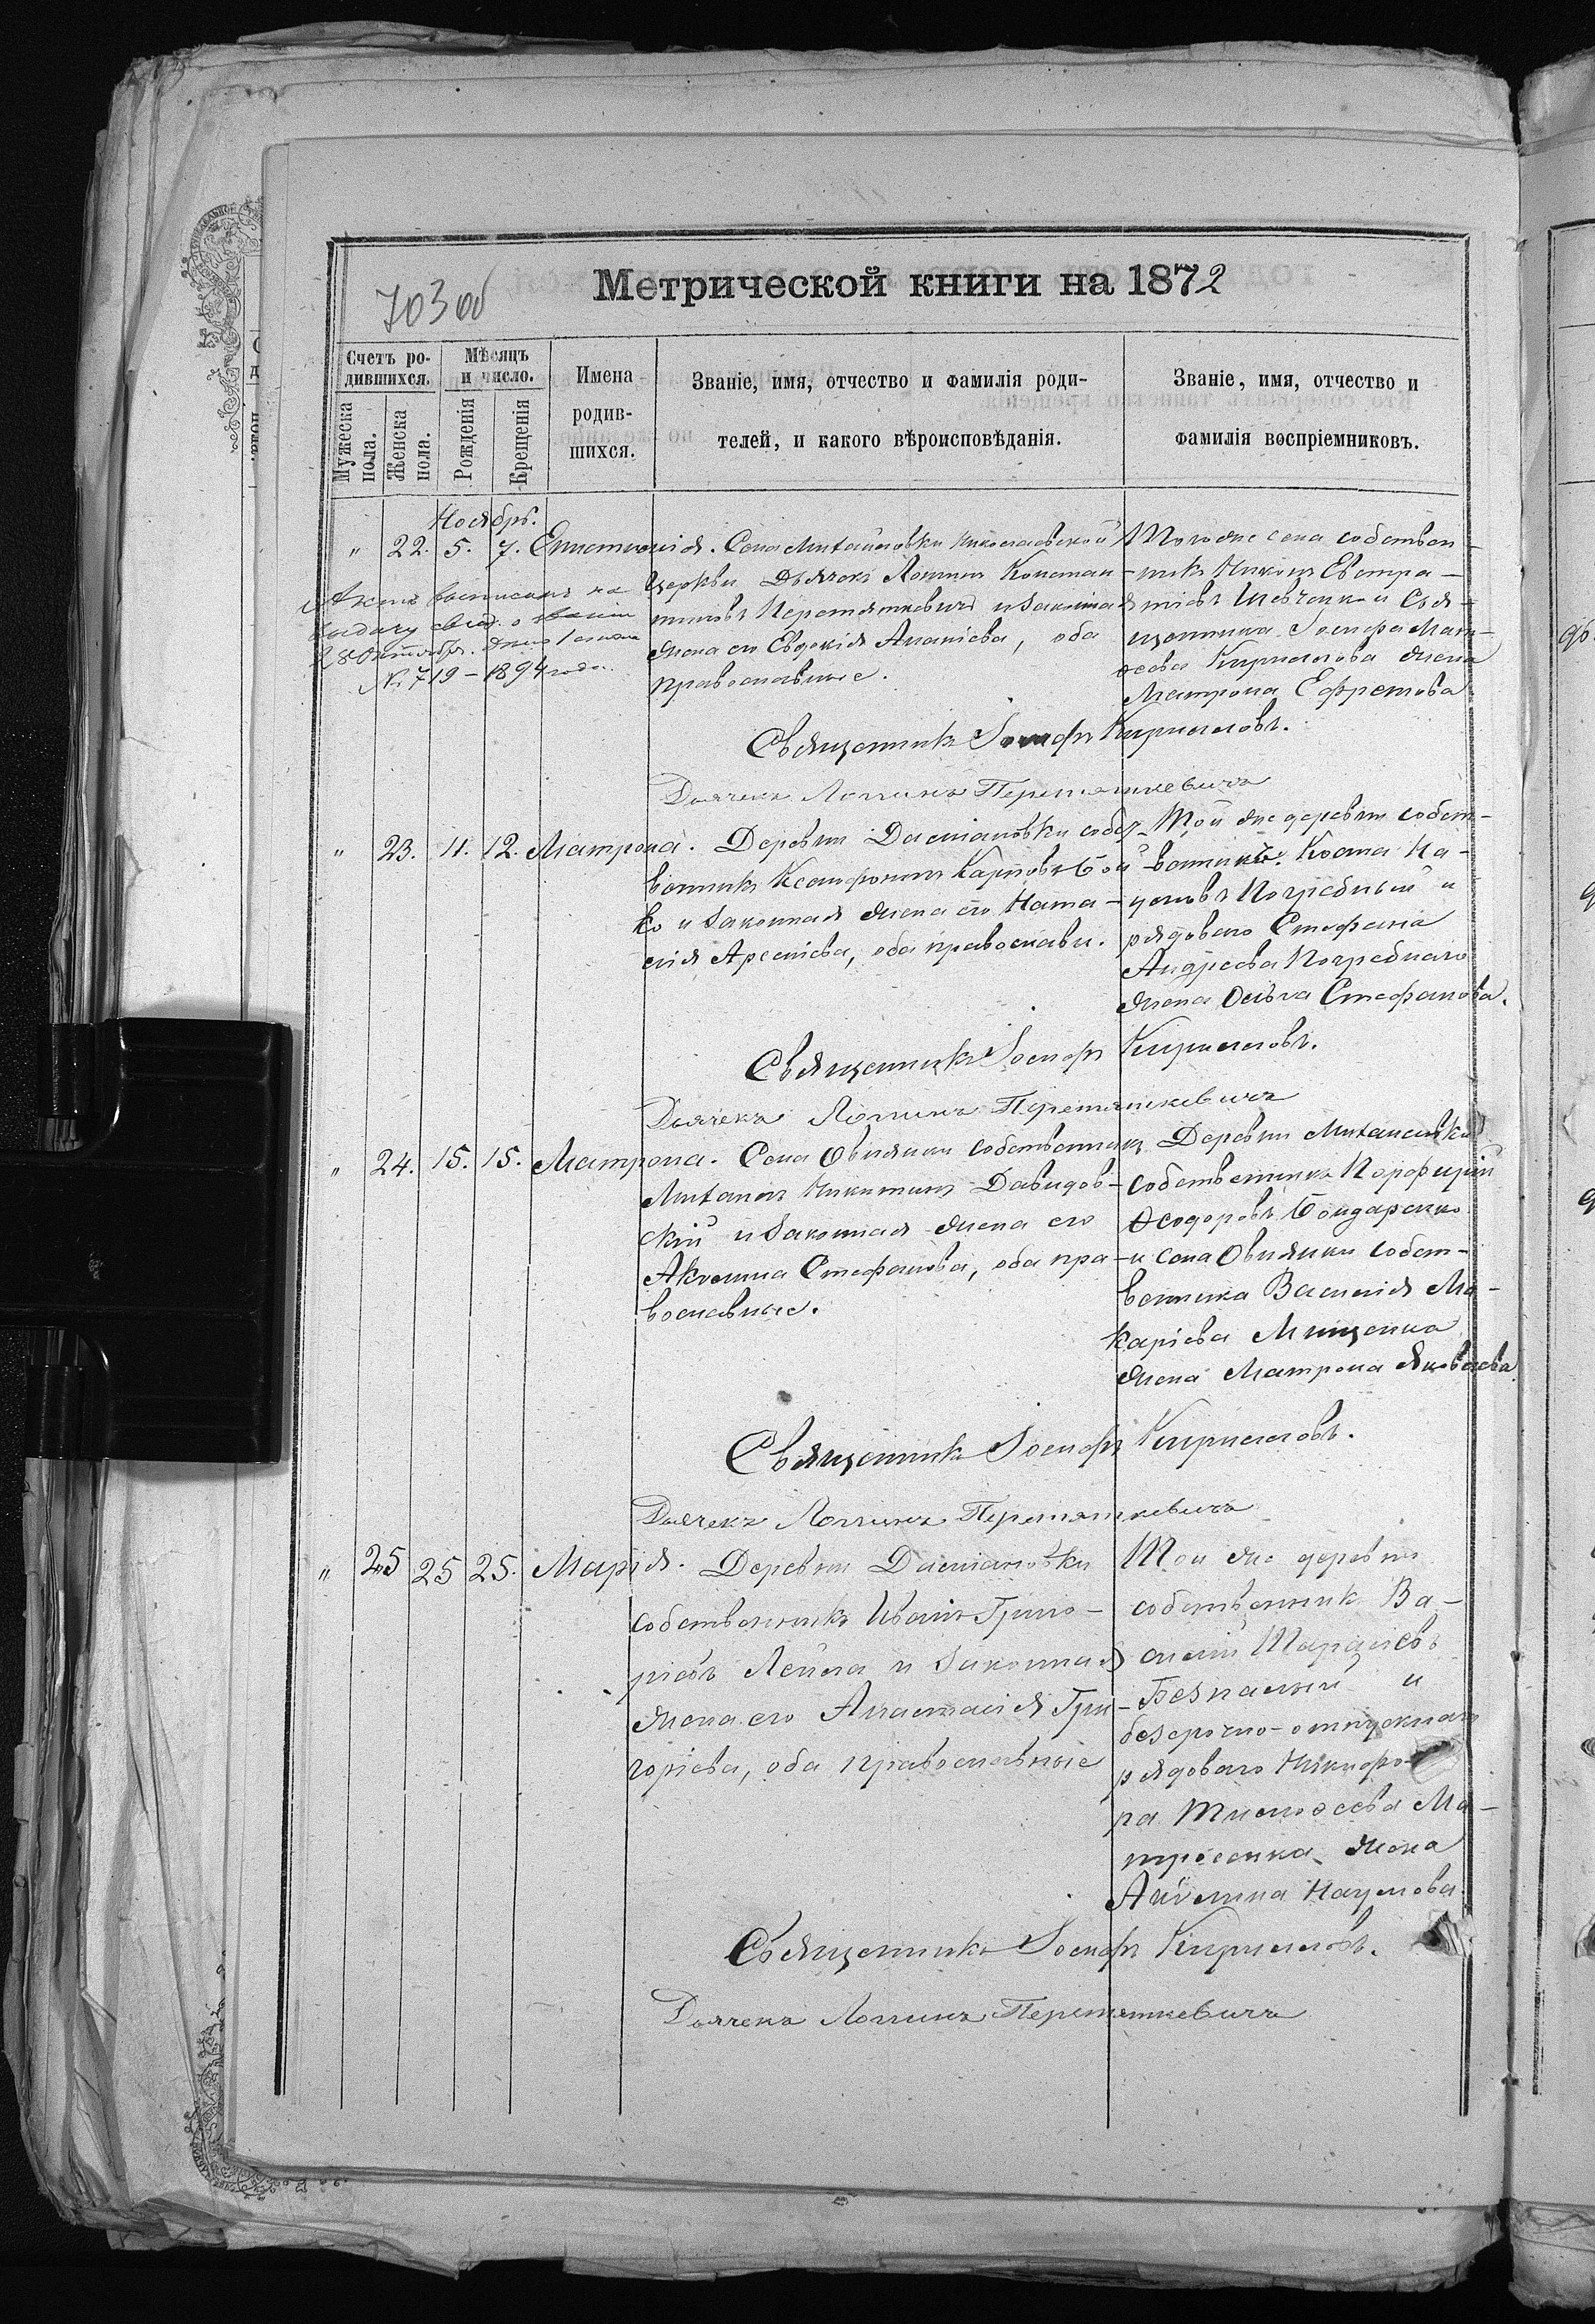 703 об
Метрической книги на 1872
Счетъ ро-
дившихся.
Мужеска
пола.
Женска
пола.
Мѣсяцъ
и число.
Рожденія
Крещенія
Имена
родив-
шихся.
Званіе, имя, отчество и фамилія роди-
телей, и какого вѣроисповѣданія.
Званіе, имя, отчество и
фамилія воспріемниковъ.
Ноябрь.
" 22. 5. 7. Епистимія. Села Михайловки Николаевской
церкви Дьячекъ Логгинъ Констан-
тиновъ Перетяткевичъ и законная
жена его Евдокія Ананіева, оба
православные.
Того же села собствен-
никъ Никонъ Евстра-
тіевъ Шевченко и Свя-
щенника Іосифа Мат-
ѳеева Кириллова жена
Матрона Ефремова
Актъ выписанъ на
выдачу свид. о
28 Октября.
№ 719 – 1894 года.
Священникъ Іосифъ Кирилловъ.
Дьячекъ Логгинъ Перетяткевичъ
" 23. 11. 12. Матрона. Деревни Дасіановки собст-
венникъ Ксенофонтъ Карповъ Бой
ко и законная жена его Ната-
лія Арсеніева, оба православн.
Той же деревни собст-
венникъ Косма На-
умовъ Погребный и
рядоваго Стефана
Андреева Погребнаго
жена Ольга Стефанова.
Священникъ Іосифъ Кирилловъ.
Дьячекъ Логгинъ Перетяткевичъ
" 24. 15. 15. Матрона. Села Овнянки собственникъ
Михаилъ Никитинъ Давидов-
скій и законная жена его
Акилина Стефанова, оба пра-
вославные.
Деревни Михайловки
собственникъ Порфирій
Ѳеодоровъ Бондаренко
и села Овнянки собст-
венника Василія Ма-
каріева Мищенка
жена Матрона Яковлева.
Священникъ Іосифъ Кирилловъ.
Дьячекъ Логгинъ Перетяткевичъ
" 25 25 25. Марія. Деревни Дасіановки
собственникъ Иванъ Григо-
ріевъ Лейла и законная
жена его Анастасія Гри-
горіева, оба православные
Той же деревни
собственник Ва-
силій Тарасіевъ
Безпалый и
безсрочно-отпускнаго
рядоваго Никифо-
ра Тимоѳеева Ма-
тросенка жена
Акилина Наумова.
Священникъ Іосифъ Кирилловъ.
Дьячекъ Логгинъ Перетяткевичъ